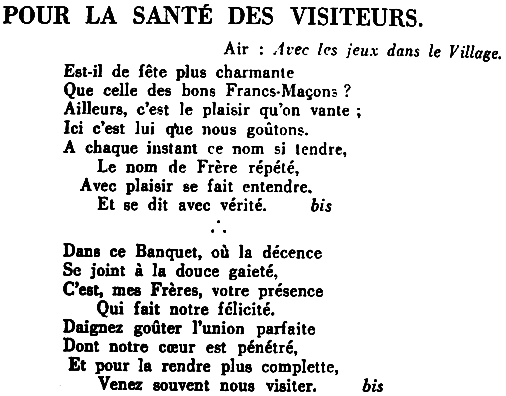 POUR LA SANTÉ DES VISITEURS.
Air : Avec les jeux dans le Village.
Est-il de fête plus charmante
Que celle des bons Francs-Maçons ?
Ailleurs, c'est le plaisir qu'on vante ;
Ici c'est lui que nous goûtons.
A chaque instant ce nom si tendre,
Le nom de Frère répété,
Avec plaisir se fait entendre.
Et se dit avec vérité. bis
∴
Dans ce Banquet, où la décence
Se joint à la douce gaieté,
C'est, mes Frères, votre présence
Qui fait notre félicité.
Daignez goûter l'union parfaite
Dont notre cœur est pénétré,
Et pour la rendre plus complette,
Venez souvent nous visiter. bis